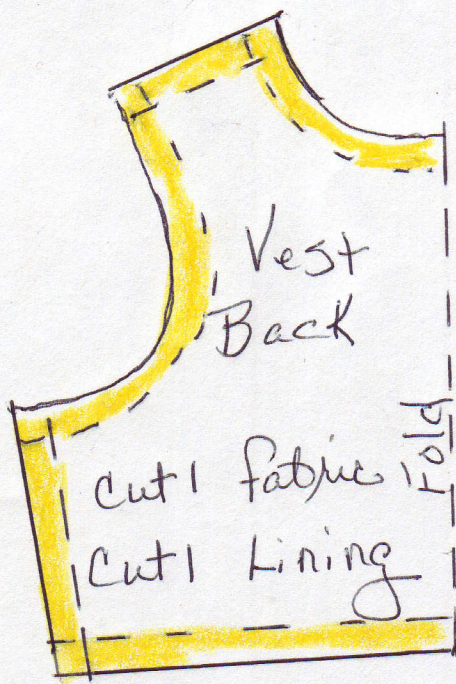 Vest
Back
Cut 1 fabric
Cut 1 Lining
Fold